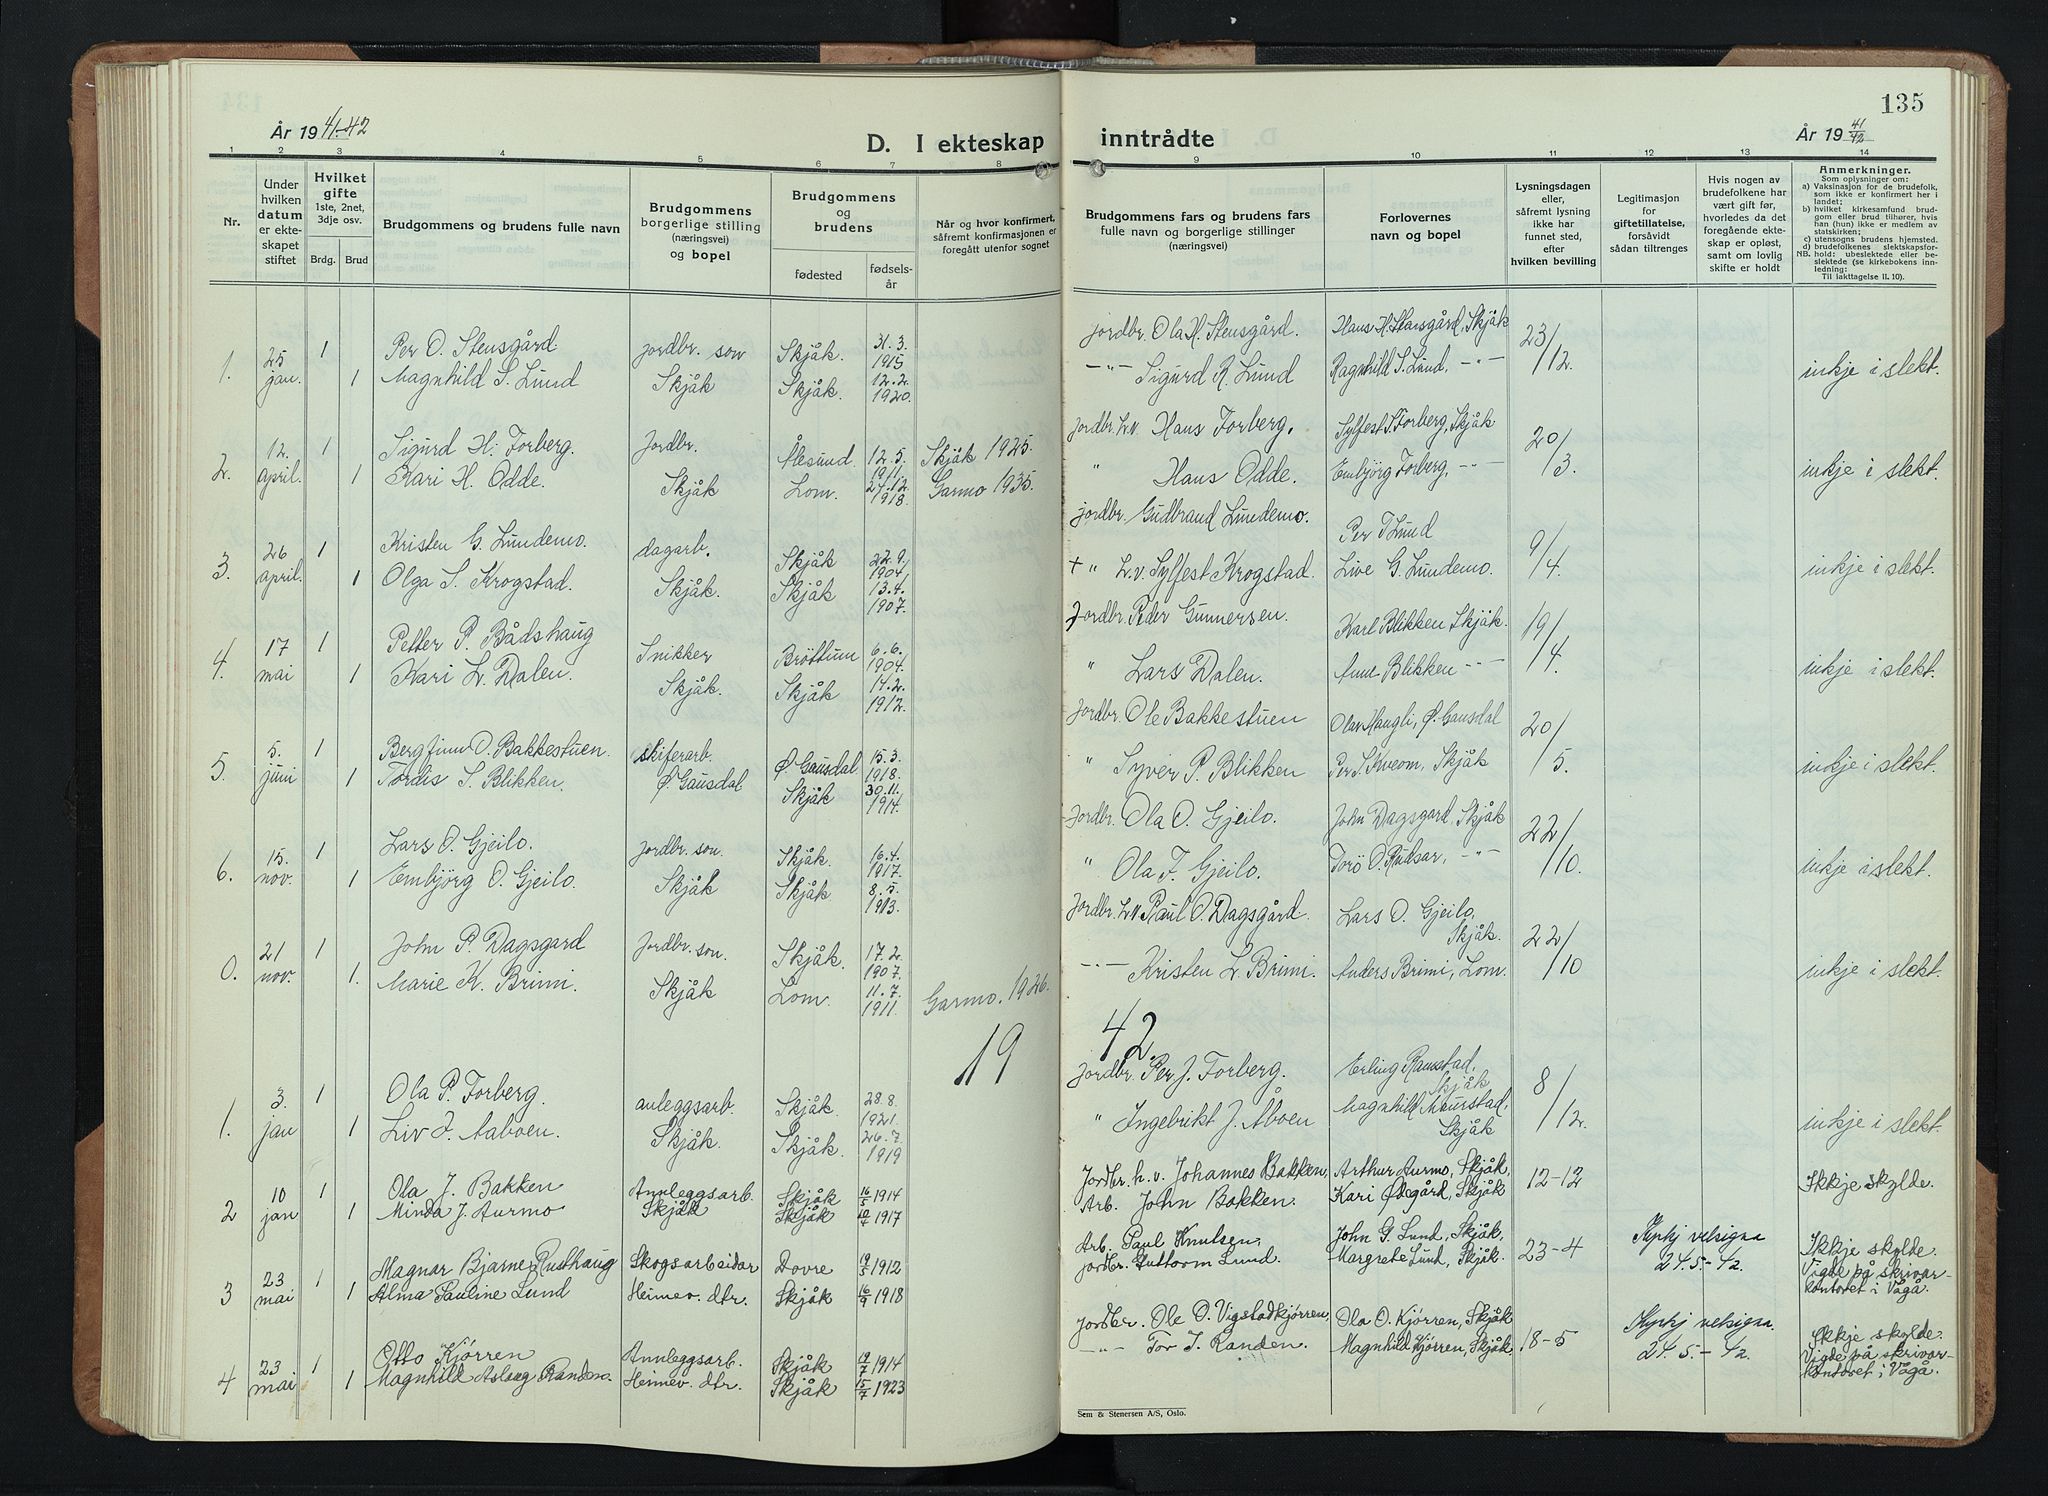 135
År 1941-42
D. I ekteskap inntrådte
År 19 41/42
1 2 3 4 5 6 7 8 9 10 11 12 13 14
Nr.
Under hvilken datum er ekteskapet stiftet
Hvilket gifte 1ste, 2net, 3dje osv.
Brdg. Brud
Brudgommens og brudens fulle navn
Brudgommens borgerlige stilling (næringsvei) og bopel
Brudgommens og brudens
fødested fødselsår
Når og hvor konfirmert, såfremt konfirmasjonen er foregått utenfor sognet
Brudgommens fars og brudens fars fulle navn og borgerlige stillinger (næringsvei)
Forlovernes navn og bopel
Lysningsdagen eller, såfremt lysning ikke har funnet sted, efter hvilken bevilling
Legitimasjon for giftetillatelse, forsåvidt sådan tiltrenges
Hvis nogen av brudefolkene har vært gift før, hvorledes da det foregående ekteskap er opløst, samt om lovlig skifte er holdt
Anmerkninger.
Som oplysninger om:
a) Vaksinasjon for de brudefolk, som ikke er konfirmert her i landet;
b) hvilket kirkesamfund brudgom eller brud tilhører, hvis han (hun) ikke er medlem av statskirken;
c) utensogns brudens hjemsted.
d) brudefolkenes slektskapsforhold: ubeslektede eller beslektede (se kirkebokens innledning:
NB.
Til iakttagelse II. 10).
1. 25 jan. 1 Per O. Stensgård jordbr. son Skjåk. 31.3. 1915 jordbr. Ola H. Stensgård. Hans H. Stensgård, Skjåk 23/12. inkje i slekt.
1 Magnhild S. Lund Skjåk Skjåk. 12.2. 1920. -"- Sigurd R. Lund Ragnhild S. Lund, -"-
2. 12. april. 1 Sigurd H. Forberg. Jordbr. Ålesund. 12.5. 1911. Skjåk 1925. Jordbr. L.v. Hans Forberg. Sylfest S Forberg, Skjåk 20/3. inkje i slekt.
1 Kari H. Odde. Skjåk Lom. 27.12. 1918. Garmo 1935. " Hans Odde. Embjörg Forberg, -"-
3. 26 april. 1 Kristen G. Lundemo. dagarb. Skjåk 22.9. 1904. jordbr. Gudbrand Lundemo. Per T Lund 9/4. inkje i slekt.
1 Olga S. Krogstad. Skjåk. Skjåk 13.4. 1907. + " L.v. Sylfest Krogstad. Live G. Lundemo.
4. 17 mai 1 Petter P. Bådshaug Snikker Bröttum 6.6. 1904. Jordbr. Peder Gunnersen. Karl Blikken Skjåk. 19/4. inkje i slekt.
1 Kari L. Dalen. Skjåk. Skjåk 14.2. 1912. " Lars Dalen. Anne Blikken -"-
5. 5. juni 1 Bergfinn O. Bakkestuen. skiferarb. Ø. Gausdal. 15.3. 1918. Jordbr. Ole Bakkestuen Olav Haugli, Ø. Gausdal 20/5. inkje i slekt.
1 Tordis S. Blikken. Ø. Gausdal Skjåk 30.11. 1914. " Syver P. Blikken Per S. Kveom, Skjåk
6. 15. nov. 1 Lars O. Gjeilo. Jordbr. son. Skjåk. 16.4. 1917. Jordbr. Ola O. Gjeilo. John Dagsgard, Skjåk 22/10. inkje i slekt.
1 Embjörg O. Gjeilo. Skjåk Skjåk. 8.5. 1913. " Ola T. Gjeilo. Torö O. -"-
0. 21 nov. 1 John P. Dagsgard Jordbr. son. Skjåk. 17.2. 1907. Jordbr. L.v. Paul O. Dagsgård. Lars O. Gjeilo, Skjåk. 22/10 inkje i slekt.
1. Marie K. Brimi. Skjåk Lom. 11.7. 1911. Garmo. 1926. -"- Kristen L. Brimi. Anders Brimi, Lom.
19 42.
1. 3. jan 1 Ola P. Forberg. anleggsarb. Skjåk. 28.8. 1921. Jordbr. Per J. Forberg. Erling Ramstad, Skjåk 8/12. inkje i slekt.
1 Liv J. Aaboen. Skjåk. Skjåk. 26.7. 1919 " Ingebrikt J. Åboen Magnhild Maurstad, Skjåk
2 10 jan 1 Ola J. Bakken Annleggsarb. Skjåk 16/5 1914 Jordbr. h.v. Johannes Bakken, Arthur Aurmo, Skjåk, 12-12 Ikkje skylde.
1 Minda J. Aurmo Skjåk Skjåk 10/4 1917 Arb. John Bakken. Kari Ødegård, Skjåk
3 23 mai 1 Magnar Bjarne Rusthaug Skogsarbeidar Dovre 19/5 1912 Arb. Paul Knutsen, John G. Lund, Skjåk, 23-4 Kyrkj velsigna 24.5.-42. Ikkje skylde. Vigde på skrivarkontoret i Vågå.
1 Alma Pauline Lund Heimev. dtr. Skjåk 16/9 1918 jordbr. Guttorm Lund. Margrete Lund, Skjåk.
4 23 mai 1 Otto Kjørren Annleggsarb. Skjåk 19/7 1914 Jordbr. Ole O. Vigstadkjørren, Ola O. Kjørren, Skjåk 18-5 Kyrkj velsigna. 24.5.-42. Ikkje skylde. Vigde på skrivarkontoret i Vågå.
1 Magnhild Aslaug Randen. Heimev. dtr. Skjåk 15/7 1923 -"- Tor J. Randen. Magnhild Kjørren, Skjåk
Sem & Stenersen A/S, Oslo.